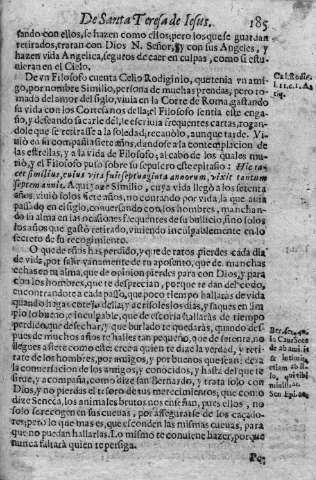 De Santa Teresa de Iesus. 185
sando con ellos, se hazen como ellos; pero los que se guardan
retirados, tratan con Dios N. Señor, y con sus Angeles, y
hazen vida Angelica, seguros de caer en culpas, como si estu-
uieran en el Cielo.
De vn Filosofo cuenta Celio Rodiginio, que tenia vn ami-
go, por nombre Similio, persona de muchas prendas, pero to-
mado del amor del siglo, viuia en la Corte de Roma, gastando
su vida con los Cortesanos della; el Filosofo sentia este enga-
ño, y deseando sacarle dèl, le escriuia frequentes cartas, rogan-
dole que se retirasse a la soledad; recauòlo, aunque tarde. Vi-
uiò en su compañia siete años, dandose a la contemplacion de
las estrellas, y a la vida de Filosofo; al cabo de los quales mu-
riò, y el Filosofo puso sobre su sepulcro este epitafio: Hic ia-
cet Similius, cuius vita fuit septuaginta annorum, vixit tantum
septem annis. Aqui yaze Similio, cuya vida llegò a los setenta
años, viuiò solos siete años, no contando por vida, la que auia
passado en el siglo, conuersando con los hombres, manchan-
do su alma en las ocasiones frequentes de su bullicio, sino solos
los años que gastò retirado, viuiendo inculpablemente en lo
secreto de su recogimiento.
O que de años has perdido, y que de ratos pierdes cada dia
de vida, por salir vanamente de tu aposento, que de manchas
echas en tu alma, que de opinion pierdes para con Dios, y para
con los hombres, que te desprecian, porque te dan del codo,
encontrandote a cada passo, que poco tiempo hallaràs de vida
quando hagas cotejo della, y acrisoles los dias, y saques en lim-
pio lo bueno, e inculpable, que de escoria hallaràs de tiempo
perdido, que desechar, y que burlado te quedaràs, quando des-
pues de muchos años te halles tan pequeño, que de setenta, no
llegues a siete como este; crea a quien te dize la verdad, y reti-
rate de los hombres, por amigos, y por buenos que sean; dexa
la conuersacion de los amigos, y conocidos, y hasta del que te
sirue, y acompaña, como dize san Bernardo, y trata solo con
Dios, y no pierdas el tesoro de tus merecimientos; que como
dize Seneca, los animales brutos nos enseñan, pues ellos, no
solo se recogen en sus cueuas, por assegurarse de los caçado-
res; pero lo que mas es, que esconden las mismas cueuas, para
que no puedan hallarlas. Lo mismo te conuiene hazer, porque
nunca faltarà quien te persiga.